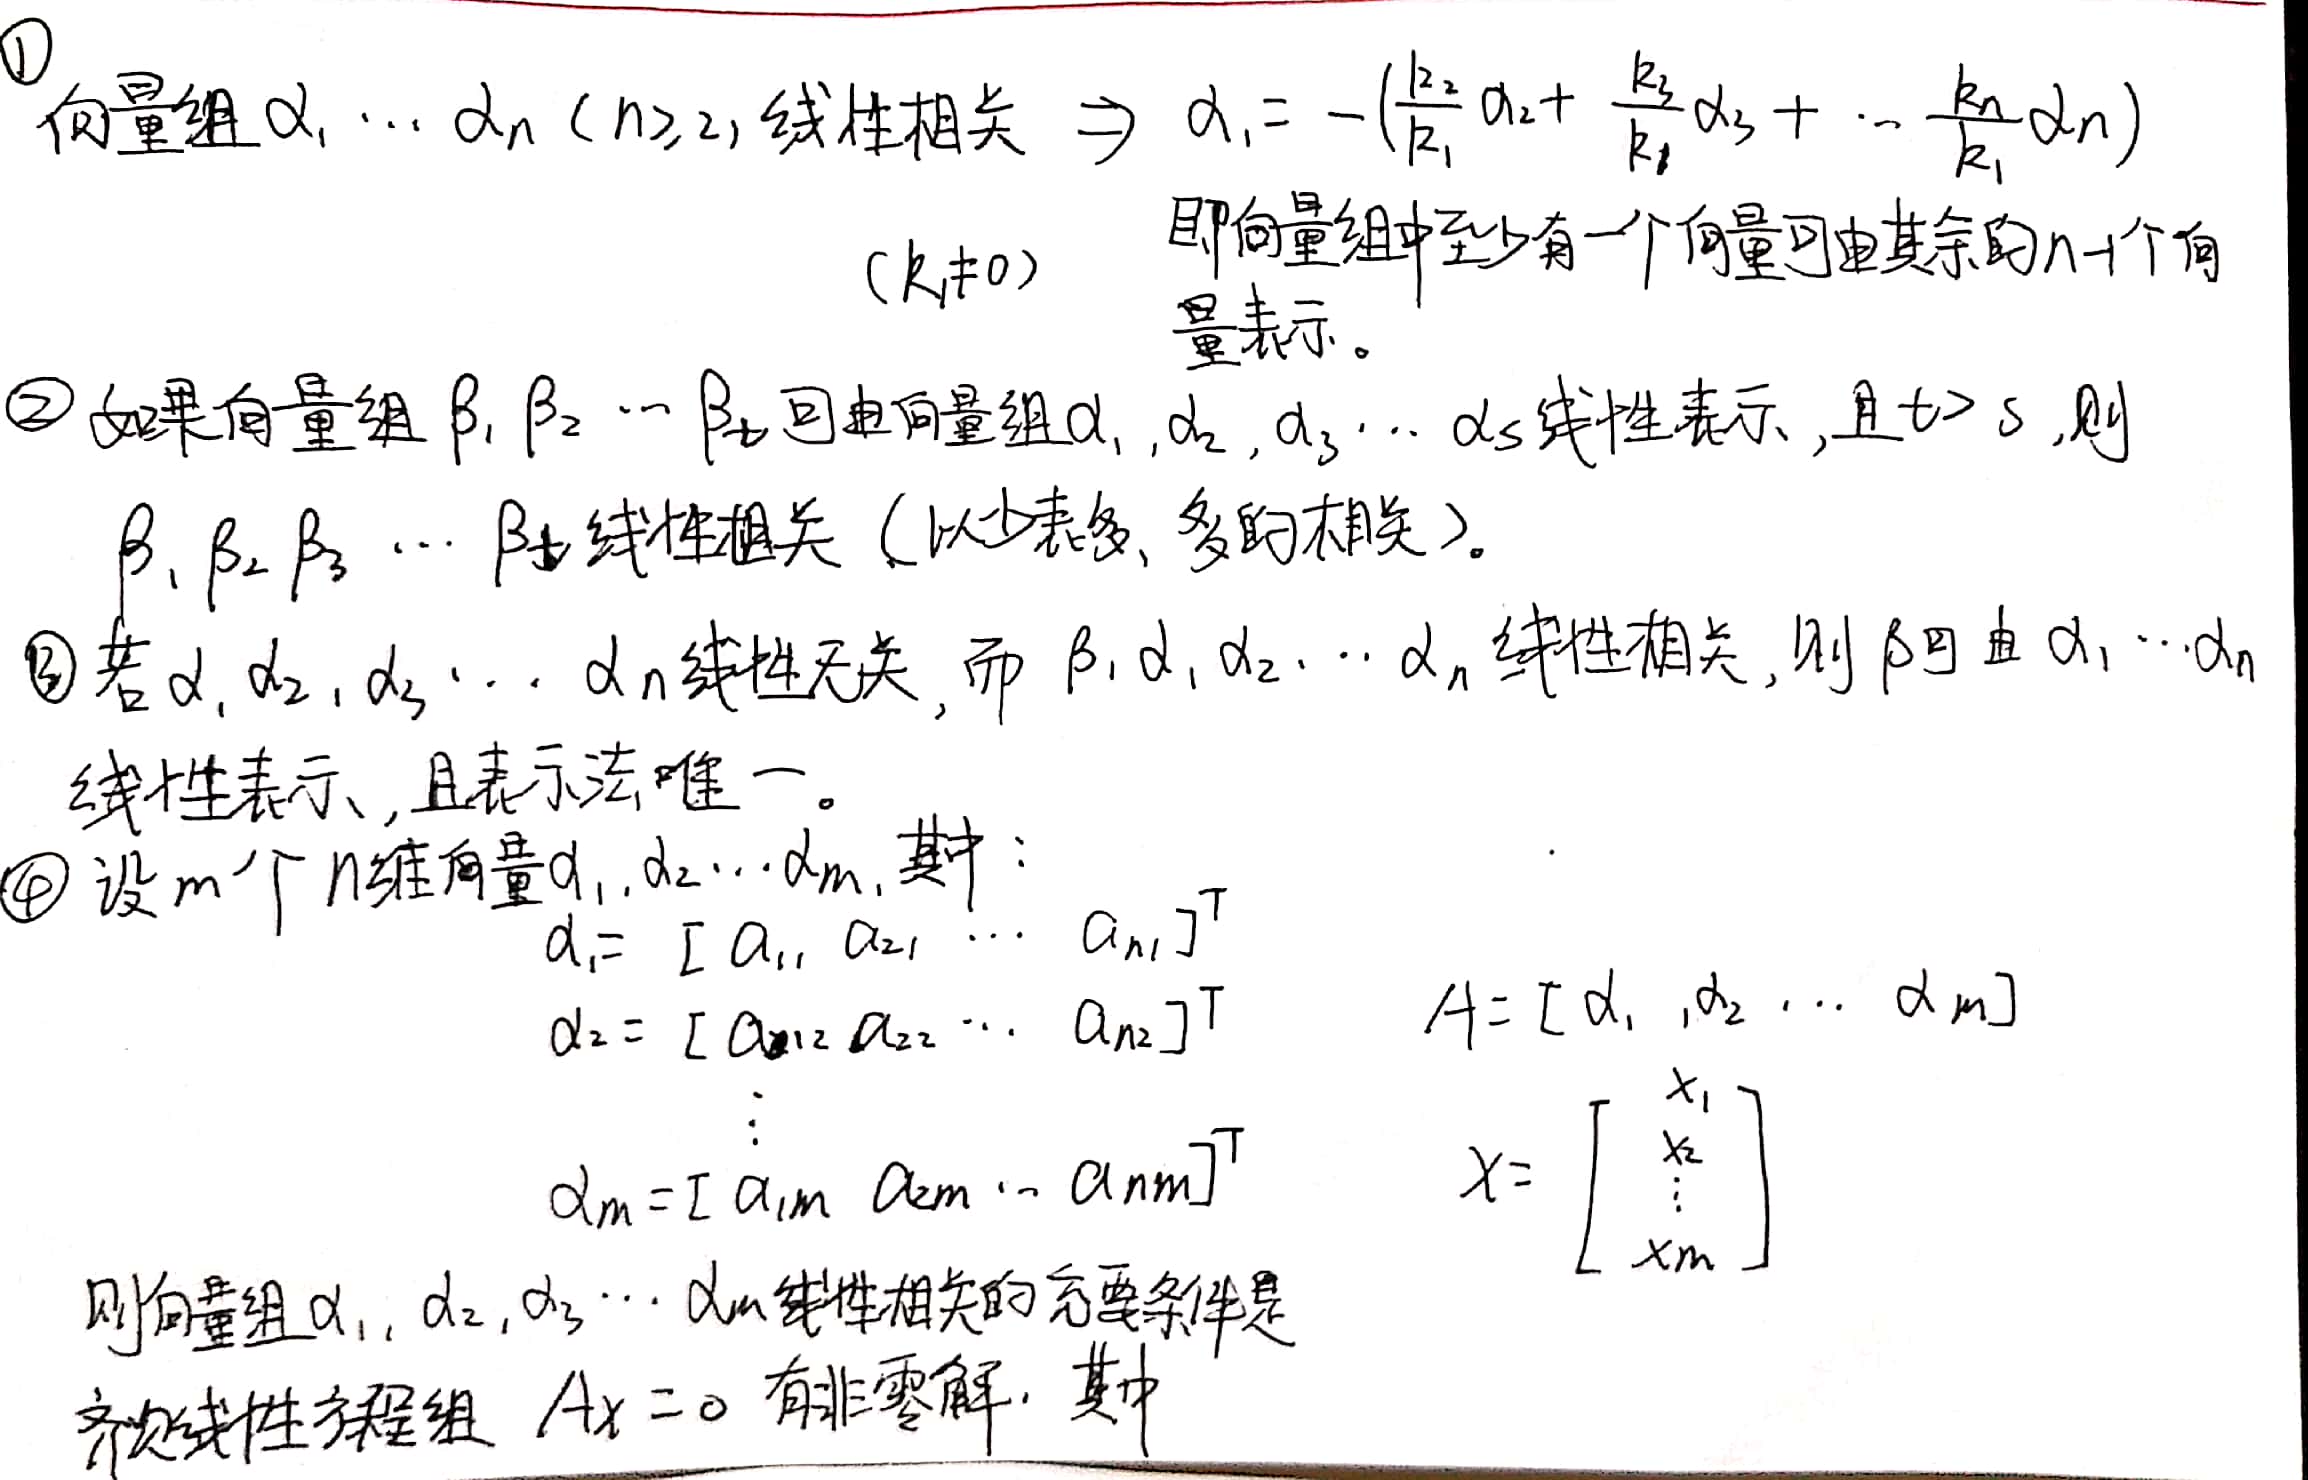 ①
向量组 α₁ … αn (n≥2) 线性相关 ⇒ α₁ = -(k₂/k₁ α₂ + k₃/k₁ α₃ + … kn/k₁ αn)
(k₁≠0) 即向量组中至少有一个向量可由其余的n-1个向
量表示。
② 如果向量组 β₁ β₂ … βt 可由向量组 α₁, α₂, α₃ … αs 线性表示, 且 t > s, 则
β₁ β₂ β₃ … βt 线性相关 (以少表多、多的相关)。
③ 若 α₁ α₂, α₃ … αn 线性无关, 而 β, α₁ α₂ … αn 线性相关, 则 β 可由 α₁ … αn
线性表示, 且表示法唯一。
④ 设 m 个 n维向量 α₁, α₂ … αm, 其中:
α₁ = [a₁₁ a₂₁ … an₁]ᵀ
α₂ = [a₁₂ a₂₂ … an₂]ᵀ
A = [α₁, α₂ … αm]
⋮
αm = [a₁m a₂m … anm]ᵀ
x = [x₁
x₂
⋮
xm]
则向量组 α₁, α₂, α₃ … αm 线性相关的充要条件是
齐次线性方程组 Ax = 0 有非零解. 其中